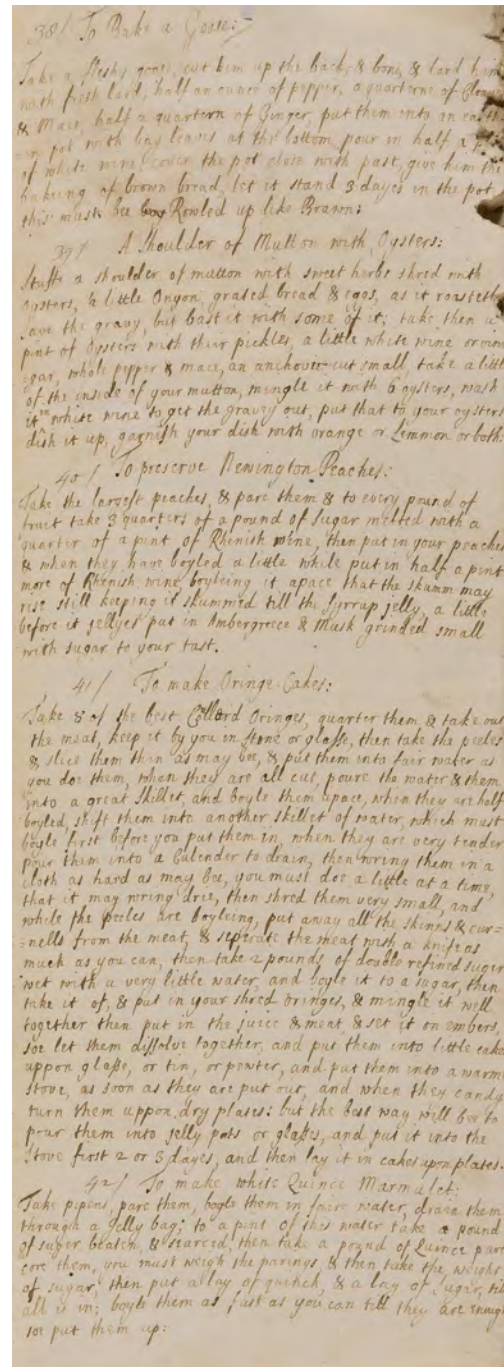 38/ To Bake a Goose:
Take a fleshy goose, cut him up the back, & bone, & lard him
with fresh lard, half an ounce of pepper, a quarterne of Clov
& Mace, half a quartern of Ginger, put them into an earth
en pot with bay leaves at the bottom, pour in half a
of white wine, cover the pot close with past, give him the
bakeing of brown bread, let it stand 3 dayes in the pot
this must bee Rowled up like Brawn:
39/ A Shoulder of Mutton with Oysters:
Stuffe a shoulder of mutton with sweet herbs shred with
oysters, a little Onyon, grated bread & eggs, as it roasteth
save the gravy, but bast it with some of it; take then a
pint of Oysters with their pickles, a little white wine or vin
egar, whole pepper & mace, an anchovie cut small, take a litt
of the inside of your mutton, mingle it with 6 oysters, wash
it in white wine to get the gravey out, put that to your oysters
dish it up, garnish your dish with orange or Lemmon or both:
40/ To preserve Newington Peaches:
Take the largest peaches, & pare them & to every pound of
fruct take 3 quarters of a pound of sugar melted with a
quarter of a pint of Rhenish wine, then put in your peaches
& when they have boyled a little while put in half a pint
more of Rhenish wine, boyleing it apace that the skumm may
rise still keeping it skummed till the Syrrap jelly, a little
before it jellyes put in Ambergreece & Musk grinded small
with sugar to your tast.
41/ To make Oringe-Cakes:
Take 8 of the best Collerd Oringes, quarter them & take out
the meat, keep it by you in stone or glasse, then take the peeles
& slice them thin as may bee, & put them into fair water as
you doe them, when they are all cut, poure the water & them
into a great skillet, and boyle them apace, when they are half
boyled, shift them into another skillet of water, which must
boyle first before you put them in, when they are very tender
pour them into a Culender to drain, then wring them in a
cloth as hard as may bee, you must doe a little at a time,
that it may wring drie, then shred them very small, and
while the peeles are boyleing, put away all the skinns & cur=
=nells from the meat, & seperate the meat with a knife as
much as you can, then take 2 pounds of double refined suger
wet with a very little water, and boyle it to a sugar, then
take it of, & put in your shred oringes, & mingle it well
together then put in the juice & meat, & set it on embers,
soe let them dissolve together, and put them into little cake
uppon glasse, or tin, or pewter, and put them into a warm
stove, as soon as they are put out, and when they candy
turn them uppon dry plates: but the best way will bee to
pour them into jelly pots or glasses, and put it into the
stove first 2 or 3 dayes, and then lay it in cakes upon plates.
42/ To make white Quince Marmalet:
Take pipens, pare them, boyle them in faire water, draen them
through a Jelly bag; to a pint of this water take a pound
of suger beaten, & searced, then take a pound of Quince pare
core them, you must weigh the parings, & then take the weight
of sugar, then put a lay of quinch, & a lay of Suger, till
all is in; boyle them as fast as you can till they are enough
soe put them up: